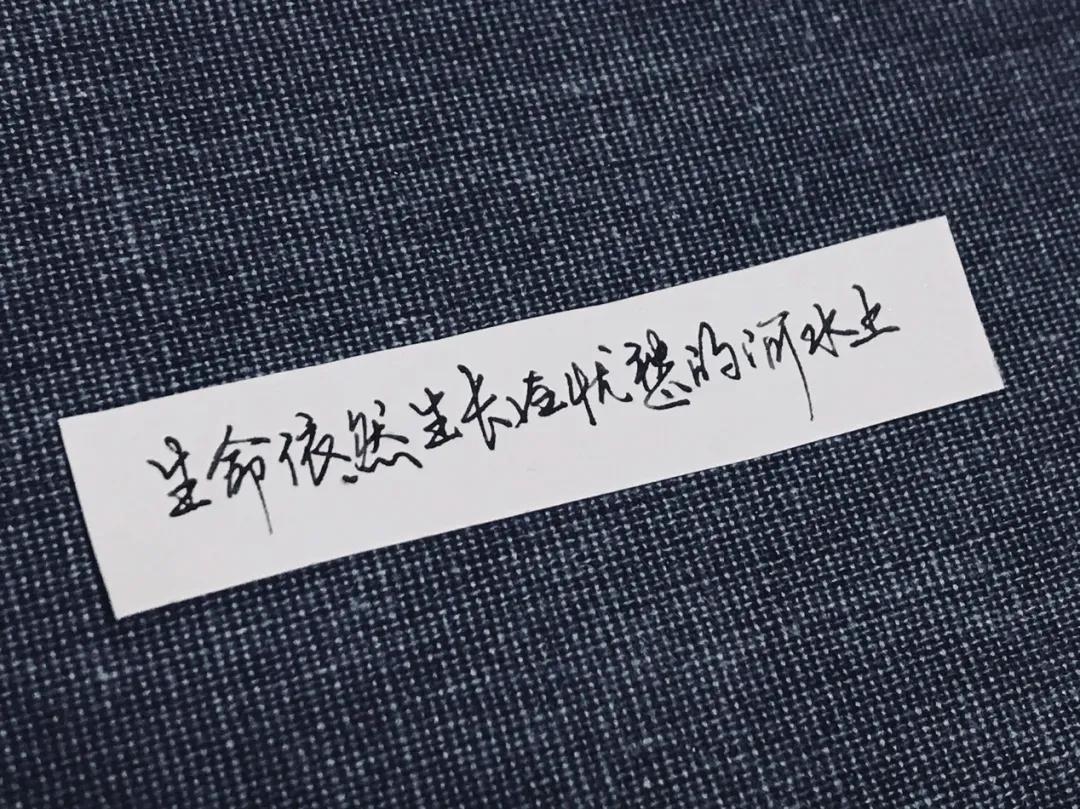 生命依然生长在忧愁的河水上